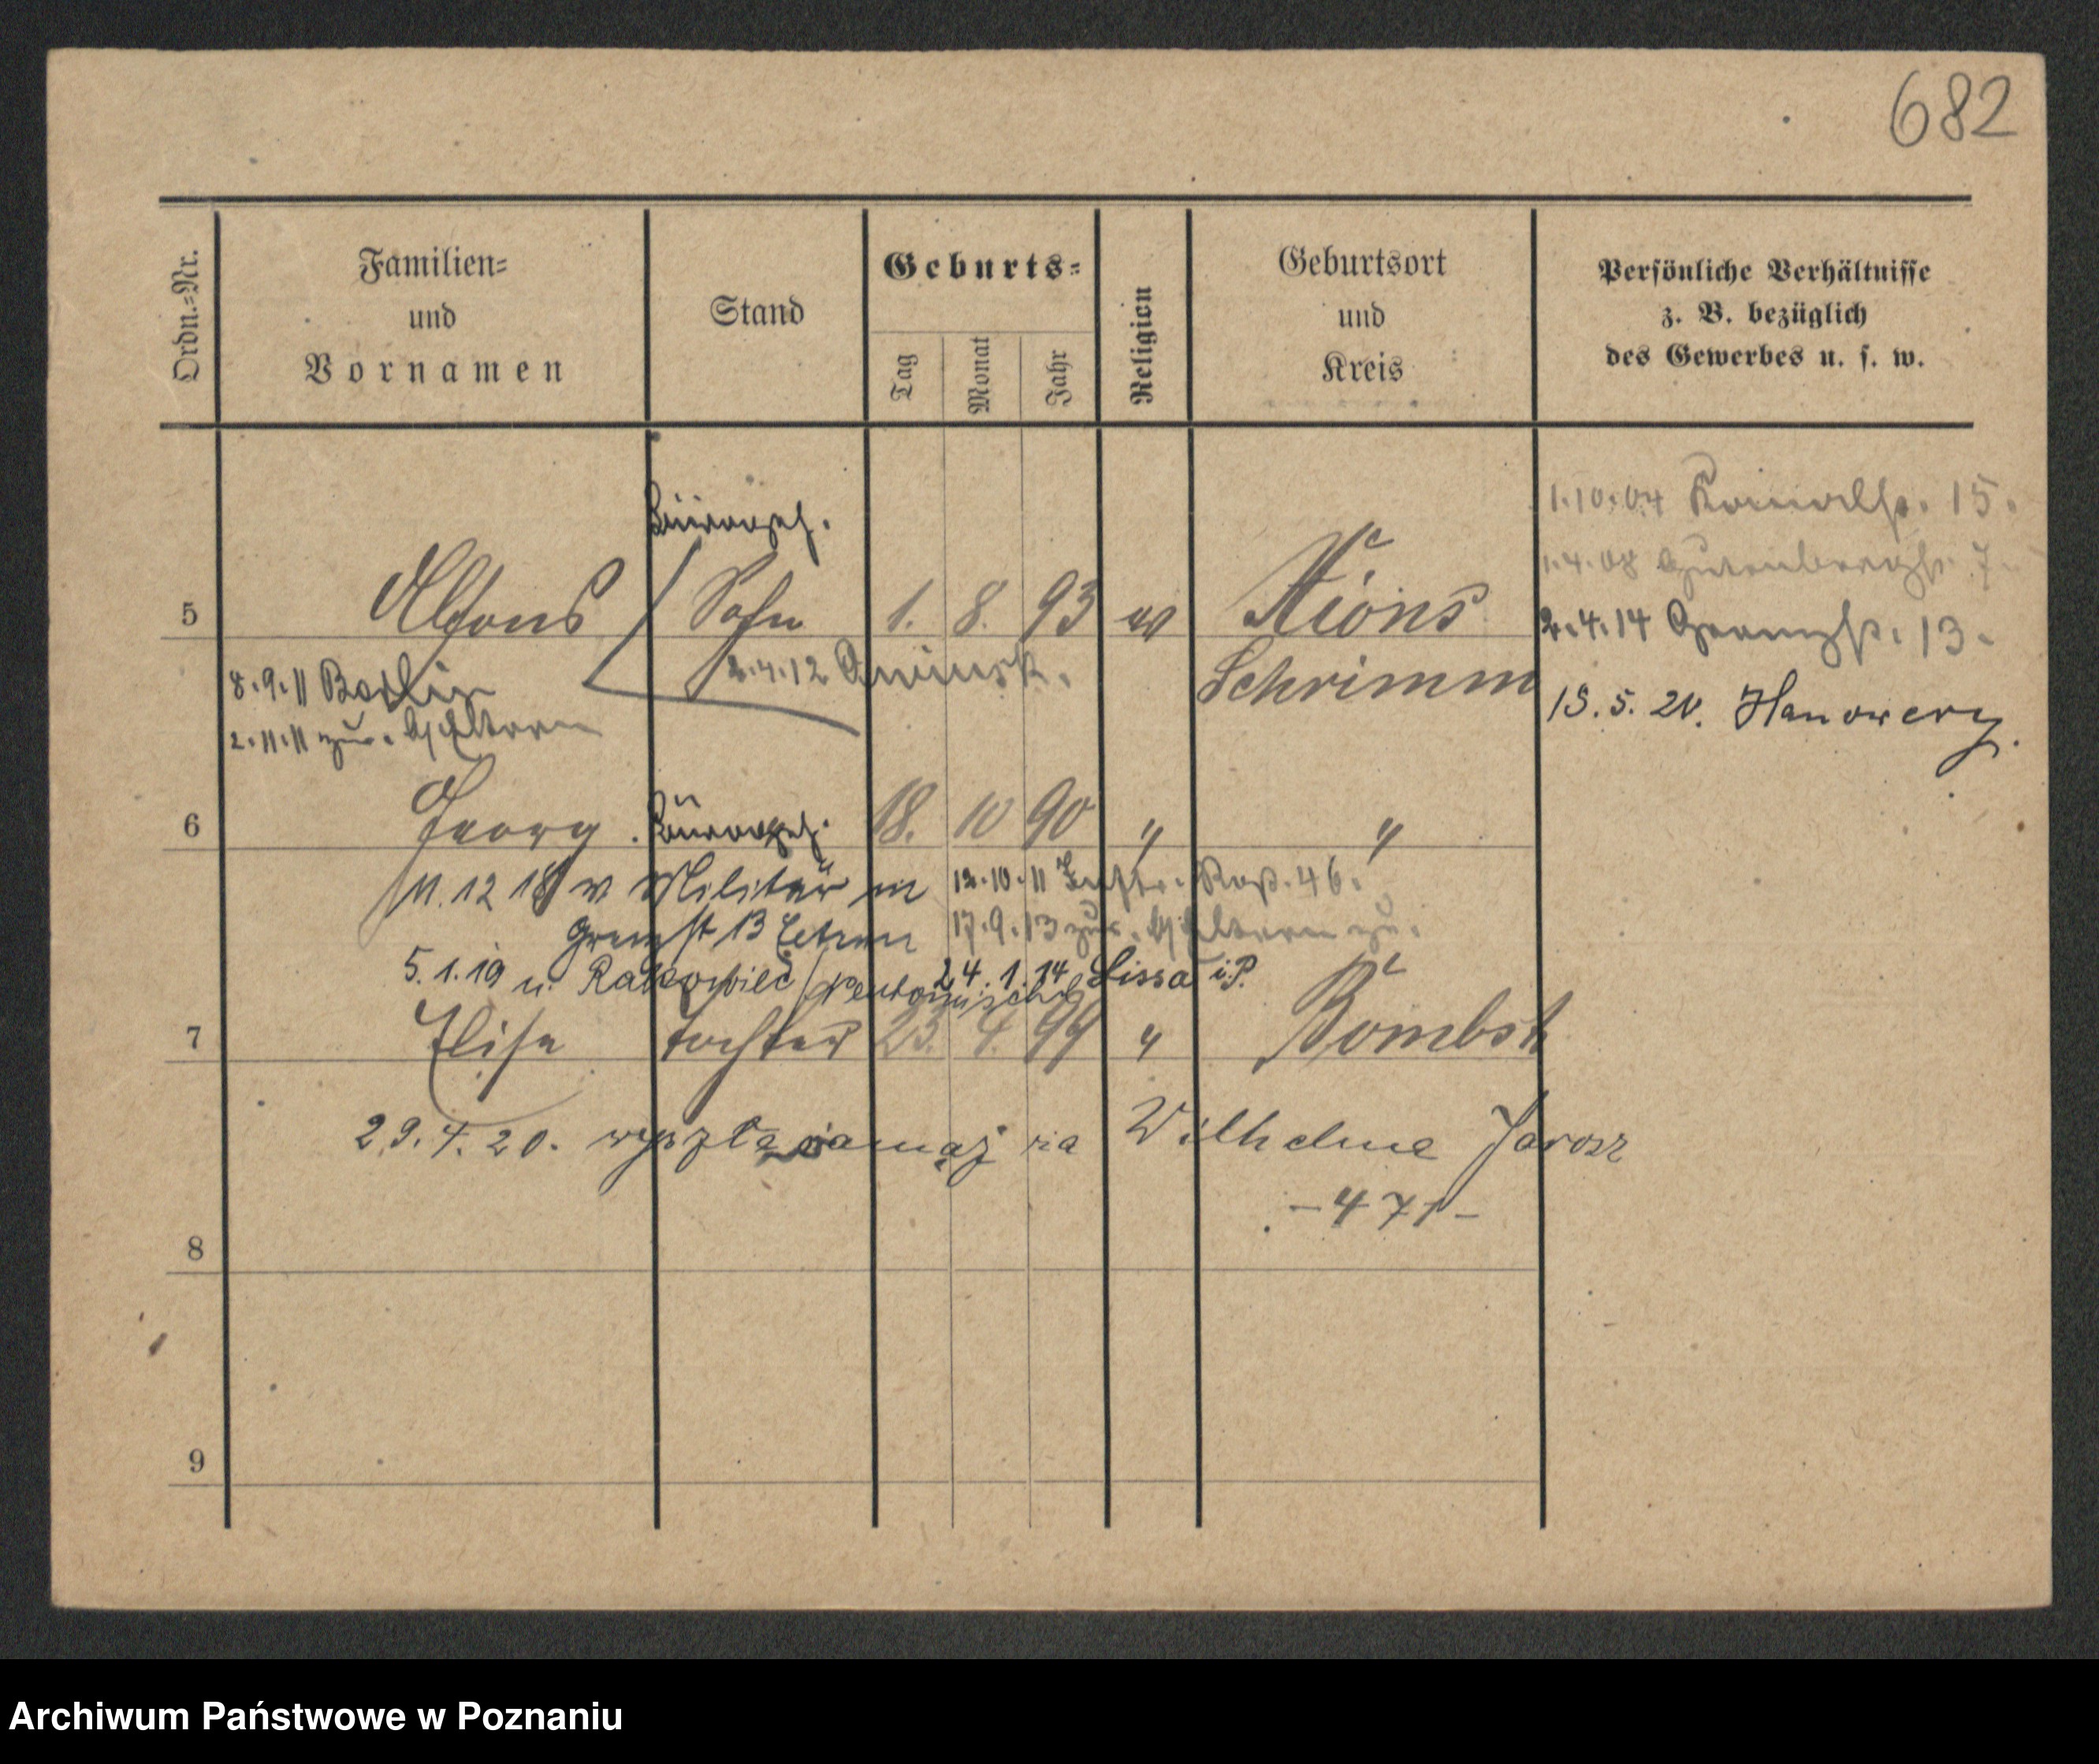 682
Ordn.=Nr.
Familien=
und
Vornamen
Stand
Geburts=
Tag
Monat
Jahr
Religion
Geburtsort
und
Kreis
Persönliche Verhältnisse
z. B. bezüglich
des Gewerbes u. s. w.
1.10.04 15.
Büroangest.
1.4.08 Gutenbergstr. 7.
5 Alfons Sohn 1. 8. 93 ev Xions
2.4.14 13.
8.9.11 Berlin 2.4.12 Schrimm
2.11.11 zur. b/ Eltern
15.5. 20. Hanower
6 Georg 18. 10 90 " "
11.12 18 v Militär in 12.10.11 46.
13 Eltern 17.9.13 zur. b/ Eltern zu.
5.1.19 n. Rakowiec / Neutomischel 24.1.14 Lissa i.P.
7 Elise Tochter 23. 4. 99 " Bomst
29.4.20. wyszła za mąż za Wilhelma Jarosz
-471-
8
9
Archiwum Państwowe w Poznaniu